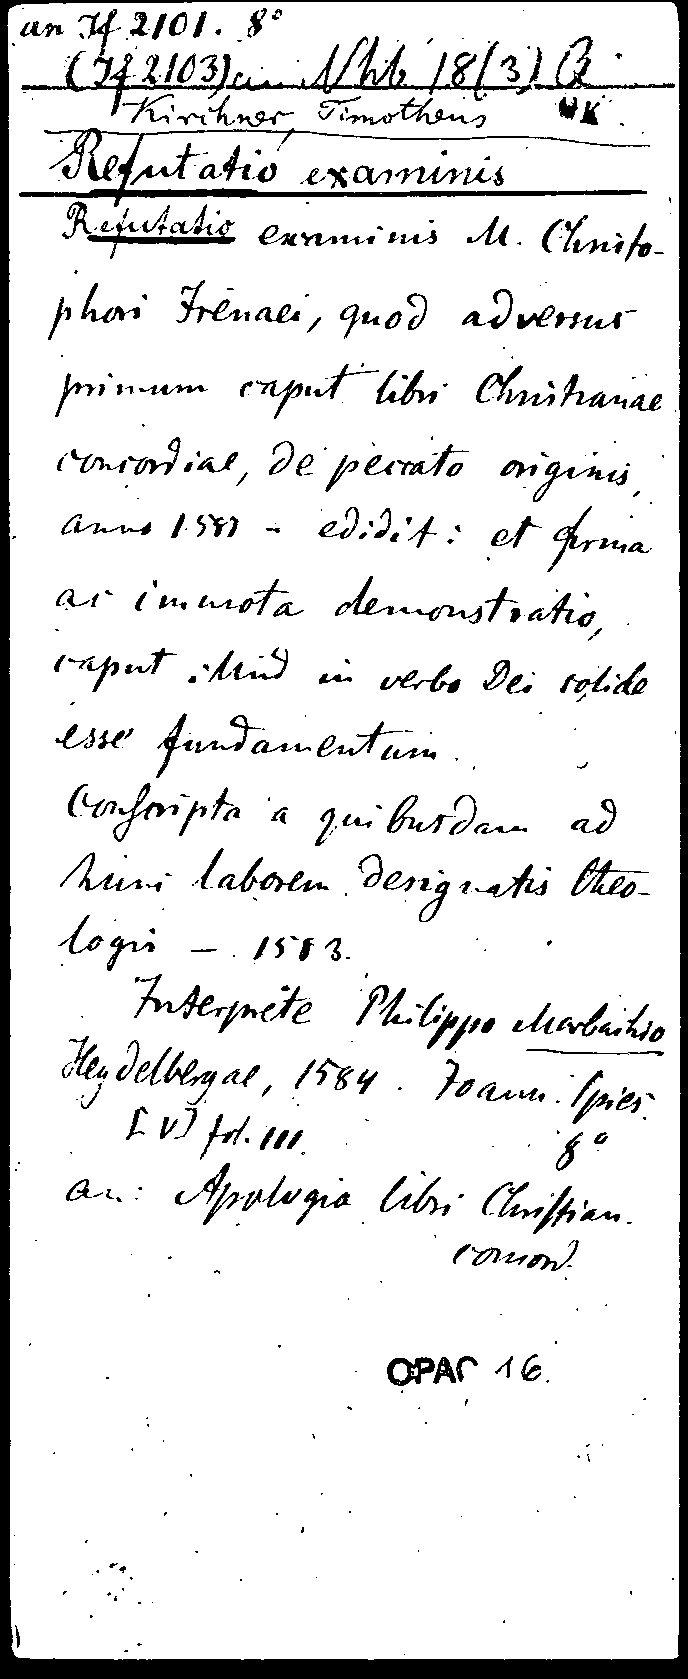 an If 2101. 8°
(If 2103) an Nhb 18(3) R
Kirchner, Timotheus UK
Refutatio examinis
Refutatio examinis M. Christo-
phori Irenaei, quod adversus
primum caput libri Christianae
concordiae, de peccato originis,
anno 1581 - edidit: et firma
ac immota demonstratio,
caput illud in verbo Dei solide
esse fundamentum.
Conscripta a quibusdam ad
hunc laborem designatis theo-
logis - 1583.
Interprete Philippo Marbachio
Heydelbergae, 1584. Joann. Spies.
[V] fol. 111. 8°
an: Apologia libri Christian.
concord.
OPAC 16.